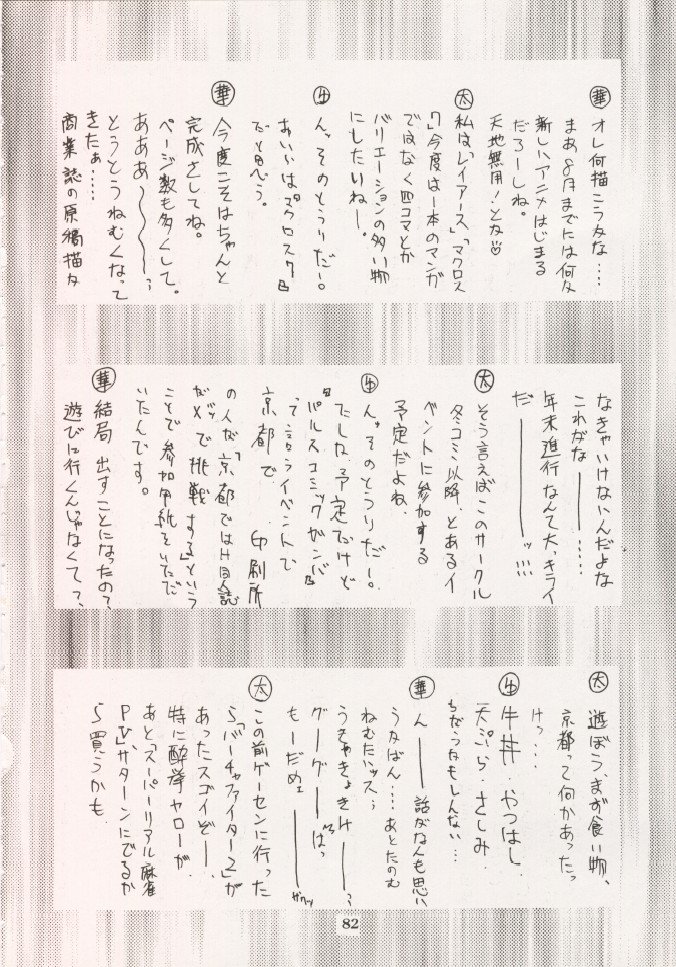 華 オレ何描こうかな……
まあ8月までには何か
新しいアニメはじまる
だろーしね。
天地無用!とか♡
太 私は「レイアース」、「マクロス
7」今度は一本のマンガ
ではなく四コマとか
バリエーションの多い物
にしたいねー。
牛 ん、そのとうりだー。
あいいば『マクロス7』
だと思う。
華 今度こそはちゃんと
完成さしてね。
ページ数も多くして。
あああ〜〜〜〜
とうとうねむくなって
きたぁ……
商業誌の原稿描か
なきゃいけないんだよな
これがな————……
年末進行なんて大っキライ
だ————ッ!!!
太 そう言えばこのサークル
冬コミ以降、とあるイ
ベントに参加する
予定だよね、
牛 ん、そのとうりだー。
たしか予定だけど
『パルスコミックジャンバ』
て言うイベントで
京都で 印刷所
の人が"京都ではH同人誌
がダメで挑戦する"という
ことで参加用紙をいただ
いたんです。
華 結局出すことになったの?
遊びに行くんじゃなくて?
太 遊ぼう、まず食い物、
京都って何かあったっ
けっ...
牛 牛丼・やつはし、
天ぷら・さしみ、
ちがうかもしんない…
華 ん——話がなんも思い
うかばん……あとたのむ
ねむたいッス
うきゃきょきけ————
グーグー————ばっ
もーだめェ————
ガクッ
太 この前ゲーセンに行った
ら「バーチャファイター2」が
あったスゴイぞー、
特に酔拳ヤローが
あと「スーパーリアル麻雀
PV」がサターンにでるか
ら買うかも、
82